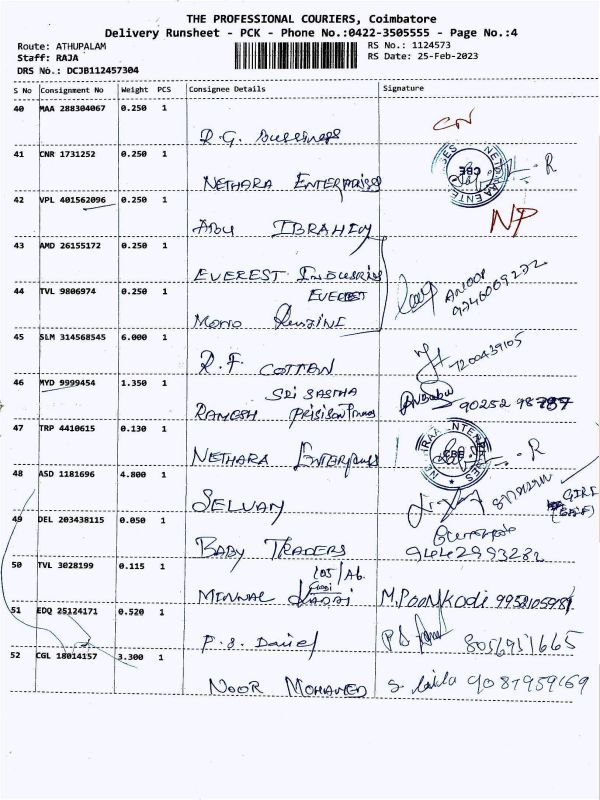 THE PROFESSIONAL COURIERS, Coimbatore
Delivery Runsheet - PCK - Phone No.:0422-3505555 - Page No.:4
Route: ATHUPALAM RS No.: 1124573
Staff: RAJA RS Date: 25-Feb-2023
DRS No.: DCJB112457304
S No Consignment No Weight PCS Consignee Details Signature
40 MAA 288304067 0.250 1
R.G. CN
41 CNR 1731252 0.250 1
NETHARA ENTERPRISES R
42 VPL 401562096 0.250 1
ABU IBRAHIM NP
43 AMD 26155172 0.250 1
EVEREST ANOOP
44 TVL 9806974 0.250 1
EVEREST
MONO
45 SLM 314568545 6.000 1
R.F. COTTON 7200439105
46 MYD 9999454 1.350 1
SRI SASTHA
RAMESH 90252 98787
47 TRP 4410615 0.130 1
NETHARA R
48 ASD 1181696 4.800 1
SELVAM
49 DEL 203438115 0.050 1
BABY TRADERS 9442993282
50 TVL 3028199 0.115 1
105/A6
MINNAL M.Poonkodi
51 EDQ 25124171 0.520 1
P.S. Daniel
52 CGL 18014157 3.300 1
NOOR MOHAMED S. Laila 9087959169